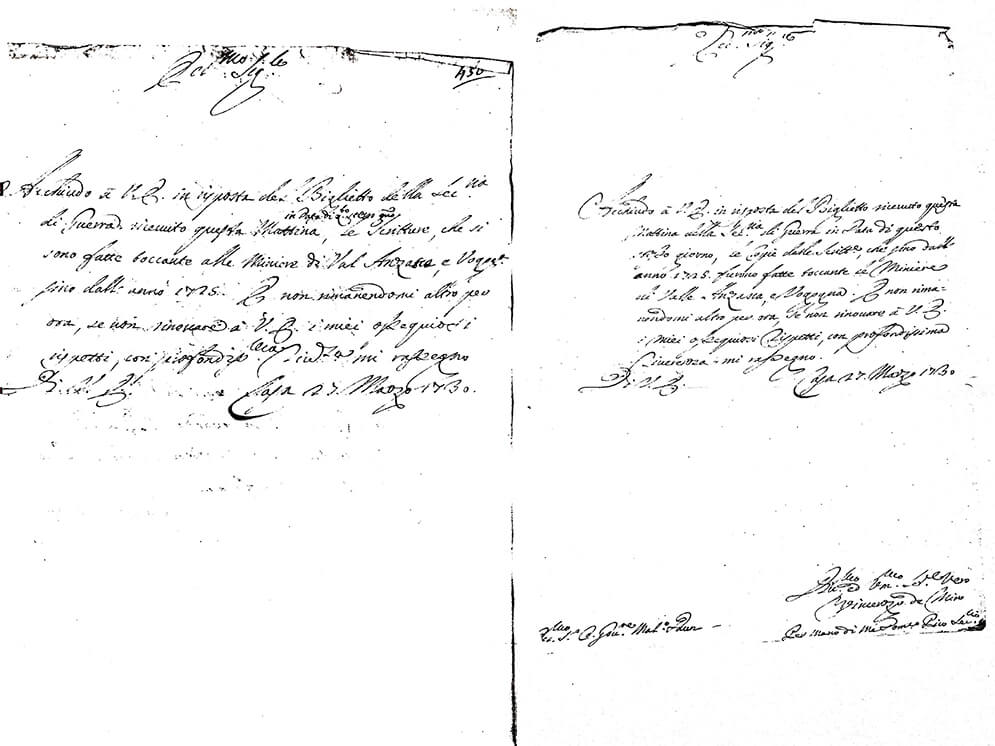 Ecc.mo Sig.re
450
Acchiudo à V. E. in risposta del Biglietto della Seg.ria
in data di q.sto
di Guerra ricevuto questa Mattina, le Scritture, che si
sono fatte toccante alle Miniere di Val Anzasca, e Vogog.a
sino dall' anno 1725. E non rimanendomi altro per
ora, se non rinovare à V. E. i miei ossequiosi
rispetti, con profondiss.a mi rassegno
Di V. E. Casa 27. Marzo 1730.
Ecc.mo Sig.re
Acchiudo à V. E. in risposta del Biglietto ricevuto questa
Mattina della Seg.ria di Guerra in data di questo
giorno, le Copie delle Scritt.e, che sino dall'
anno 1725. furono fatte toccante le Miniere
di Valle Anzasca, e Vogogna. E non rima-
nendomi altro per ora, se non rinovare à V. E.
i miei ossequiosi rispetti, con profondissima
sincerezza mi rassegno.
Di V. E. Casa 27. Marzo 1730
Vincenzo de Miro
Ecc.mo S.r Gov.re Mar.lo Daun
Per mano di me Pico Seg.rio